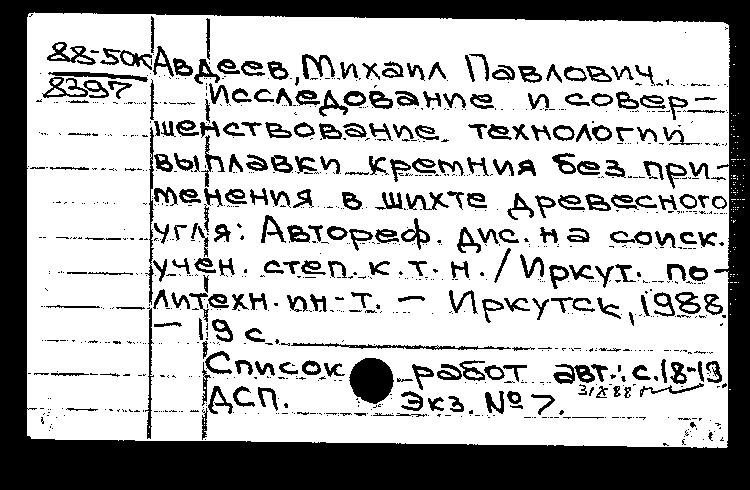 88-50К Авдеев, Михаил Павлович.
8397 Исследование и совер-
шенствование технологии
выплавки кремния без при-
менения в шихте древесного
угля: Автореф. дис. на соиск.
учен. степ. к.т.н. / Иркут. по-
литехн. ин-т. — Иркутск, 1988.
— 19 с.
Список работ авт.: с.18-19.
ДСП. Экз. № 7.